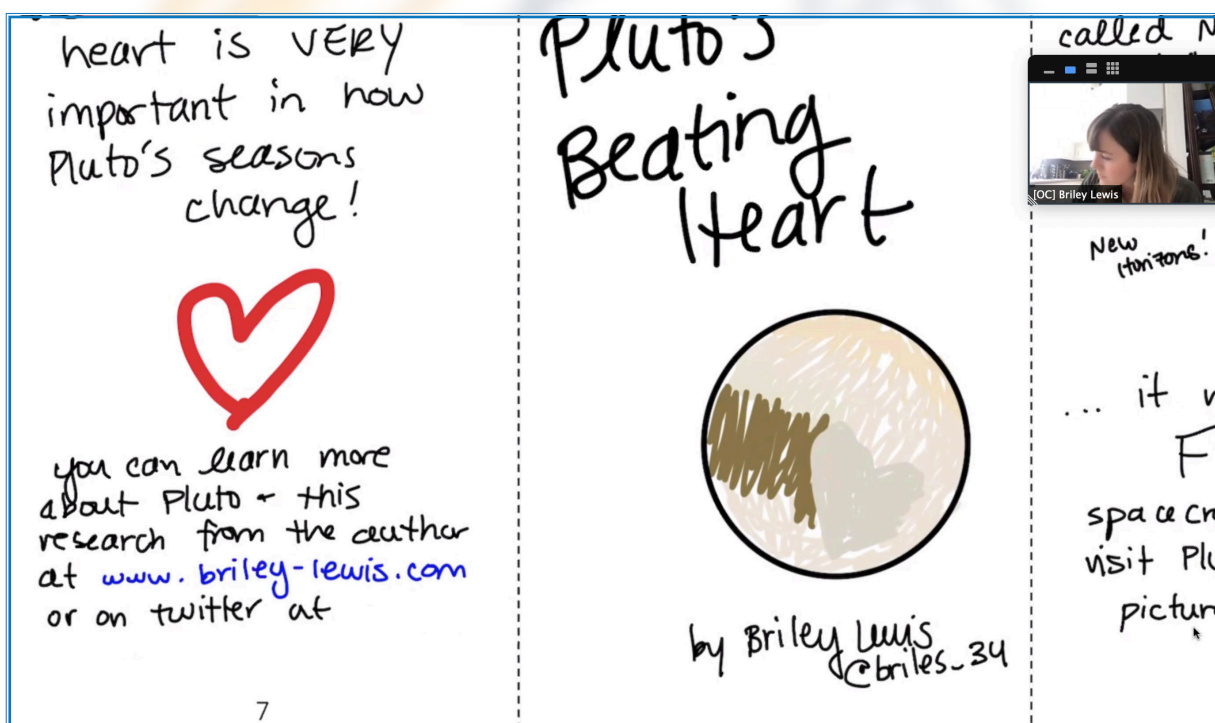 heart is VERY
important in how
Pluto's seasons
change!
you can learn more
about Pluto + this
research from the author
at www.briley-lewis.com
or on twitter at
7
Pluto's
Beating
Heart
by Briley Lewis
@briles_34
called
[OC] Briley Lewis
New
Horizons!
... it
visit